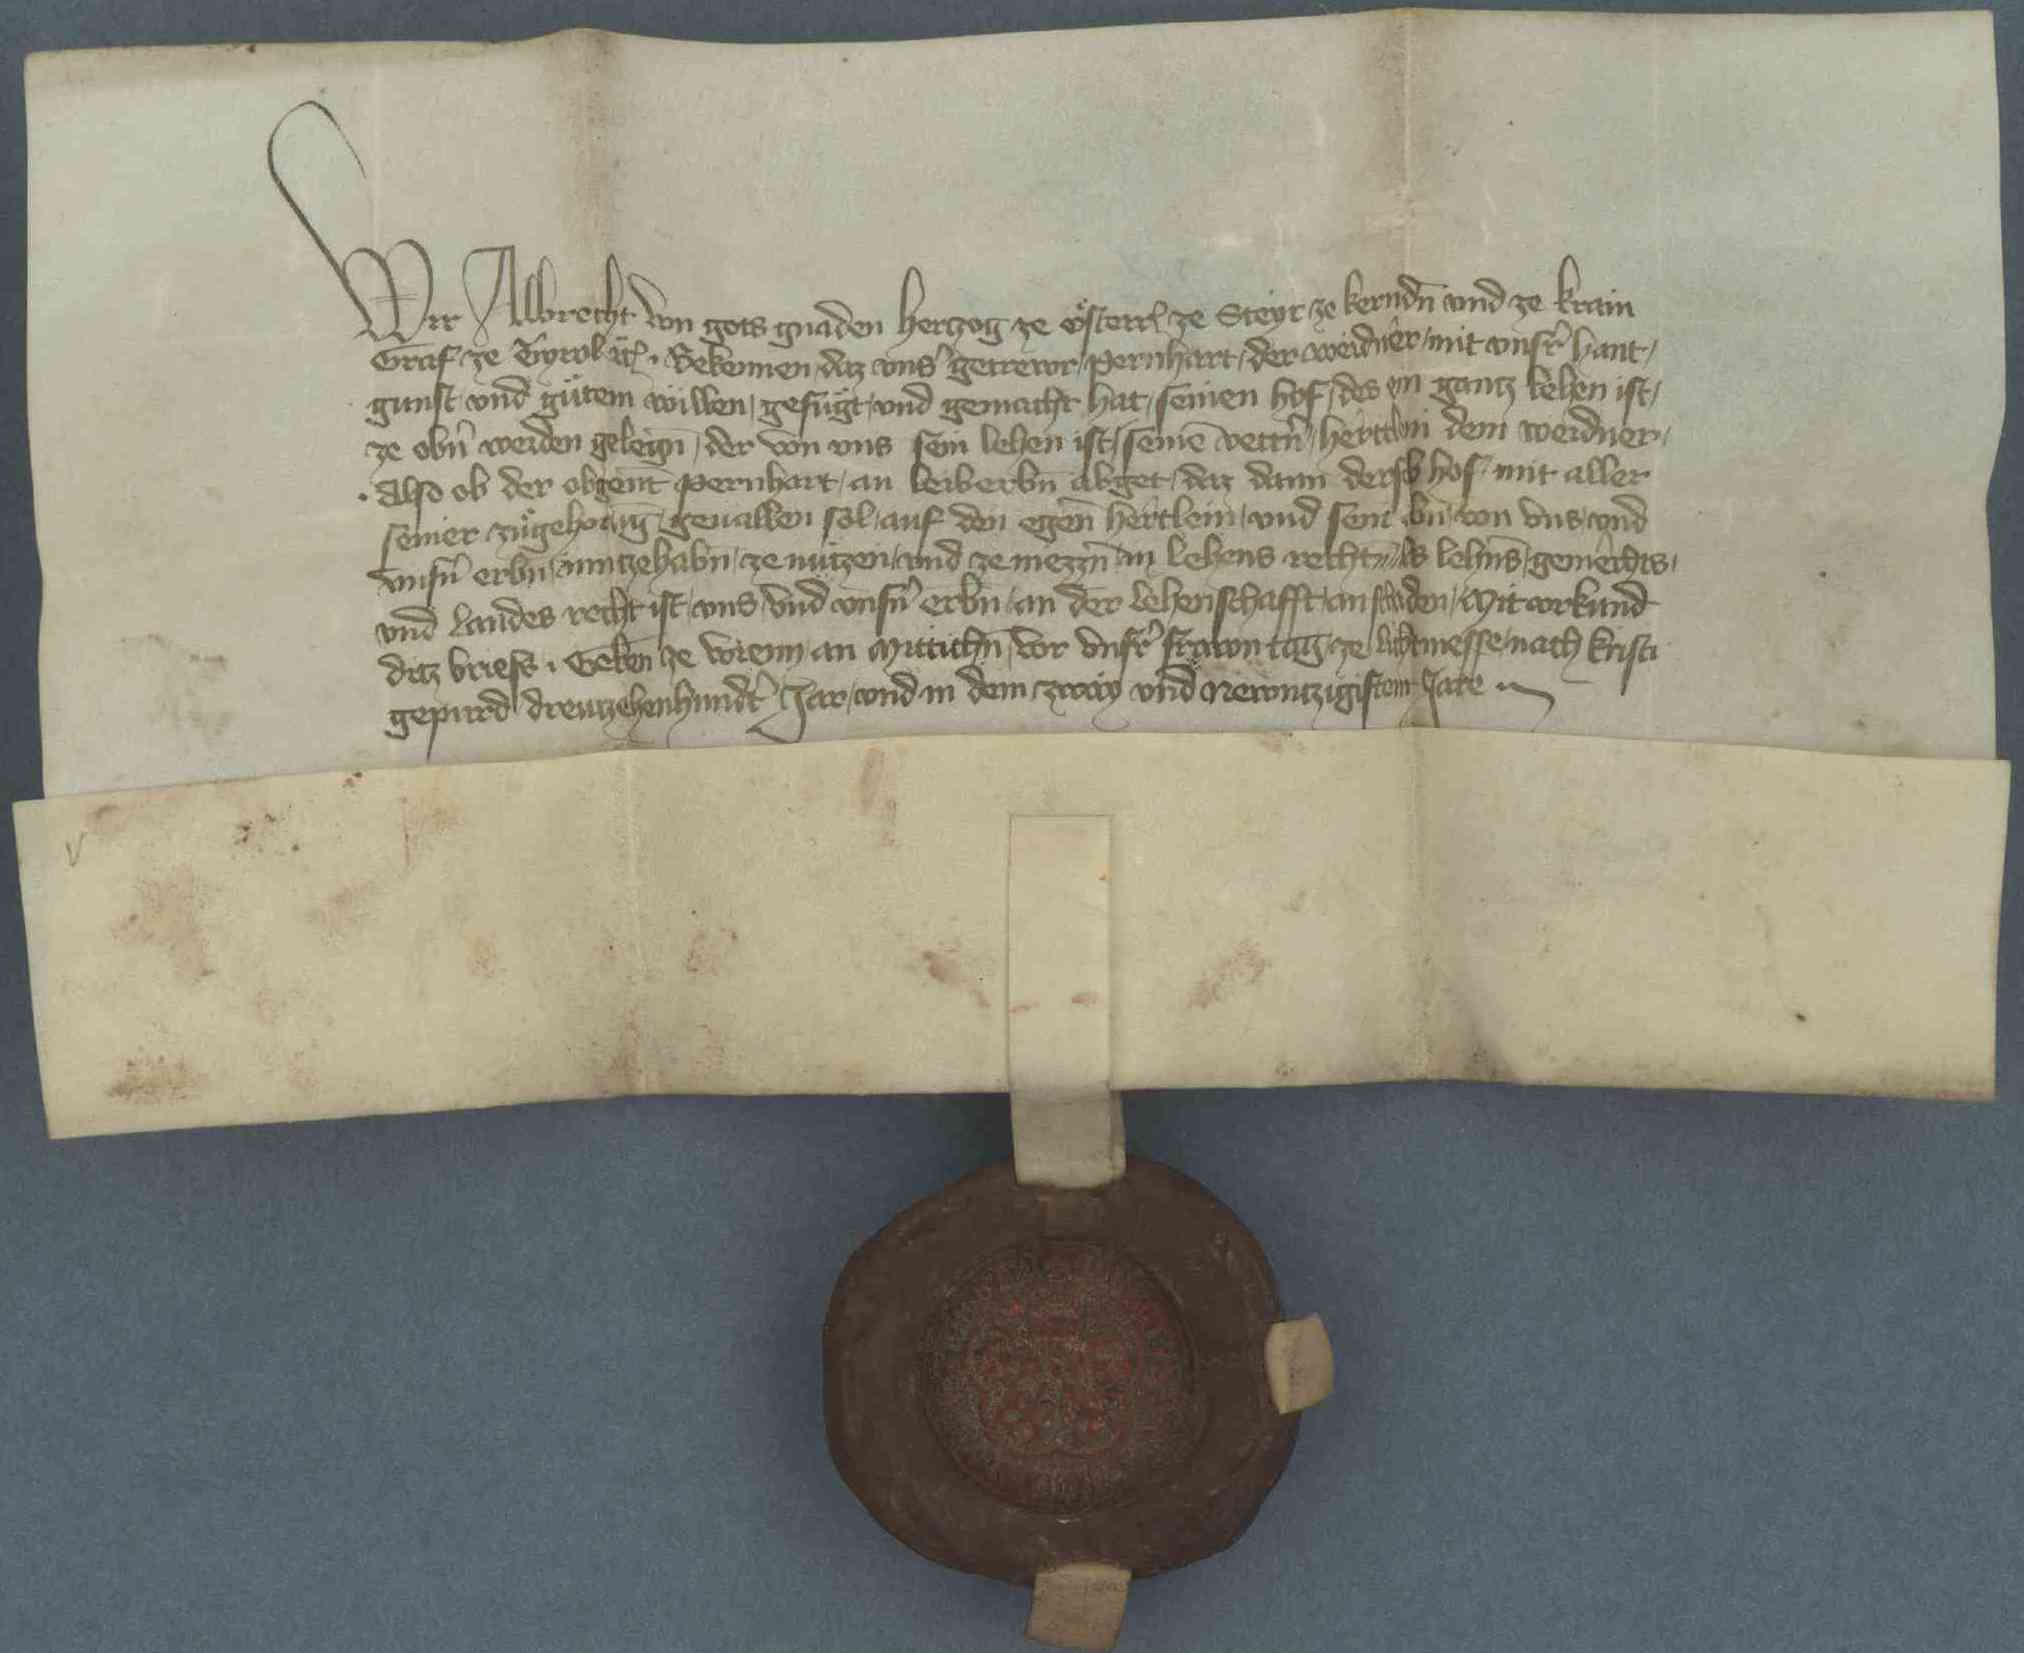 Wir Albrecht von gots gnaden Hertzog ze Österrˀ ze Steyr ze kernd̄n vnd ze krain
Graf ze Tyrol ꝛcˀ. Bekennen, daz vnsˀ getrewr, Pernhart, der weidner, mit vnsrˀ hant,
gunst vnd gůtem willen, gefůgt, vnd gemacht hat, seinen hof, des ein gantz lehen ist,
ze obn̄ weiden gelegn̄, der von vns sein lehen ist, seinē vettrn̄, hertlein dem weidner,
Also ob der obgen̄t Pernhart, an leiberbn̄ abget, daz dann derselb hof, mit aller
seiner zůgehorūg, geuallen sol, auf den egen̄ hertlein, vnd sein erbn̄, von vns, vnd
vnsrn̄ erbn̄, Inntzehabn̄, ze nützen, vnd ze niezzn̄, in lehens rechtn̄, als lehn̄s, gemechts,
vnd landes recht ist, vns, vnd vnsrn̄ erbn̄, an der lehenschafft, an schaden, Mit vrkund
ditz briefs. Geben ze wienn, an Mittichn̄, vor vnsrˀ frawn tag, ze liechtmesse, nach kristi
gepurd, dreutzehenhundˀt Jar, vnd in dem zway vnd Newntzigistem Jare